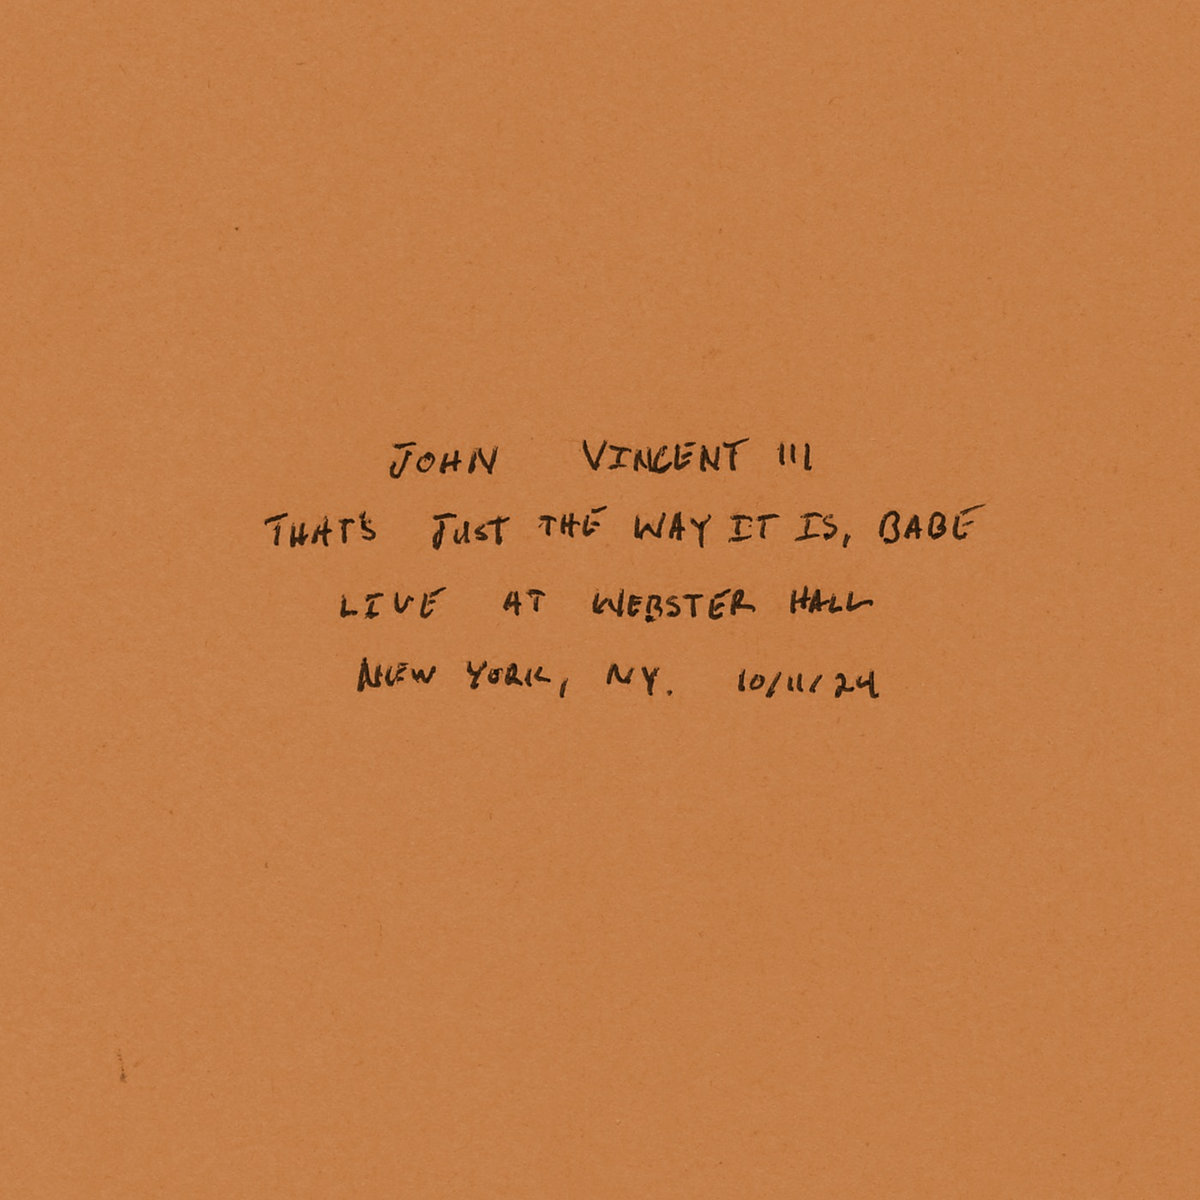 JOHN VINCENT III
THAT'S JUST THE WAY IT IS, BABE
LIVE AT WEBSTER HALL
NEW YORK, NY. 10/11/24